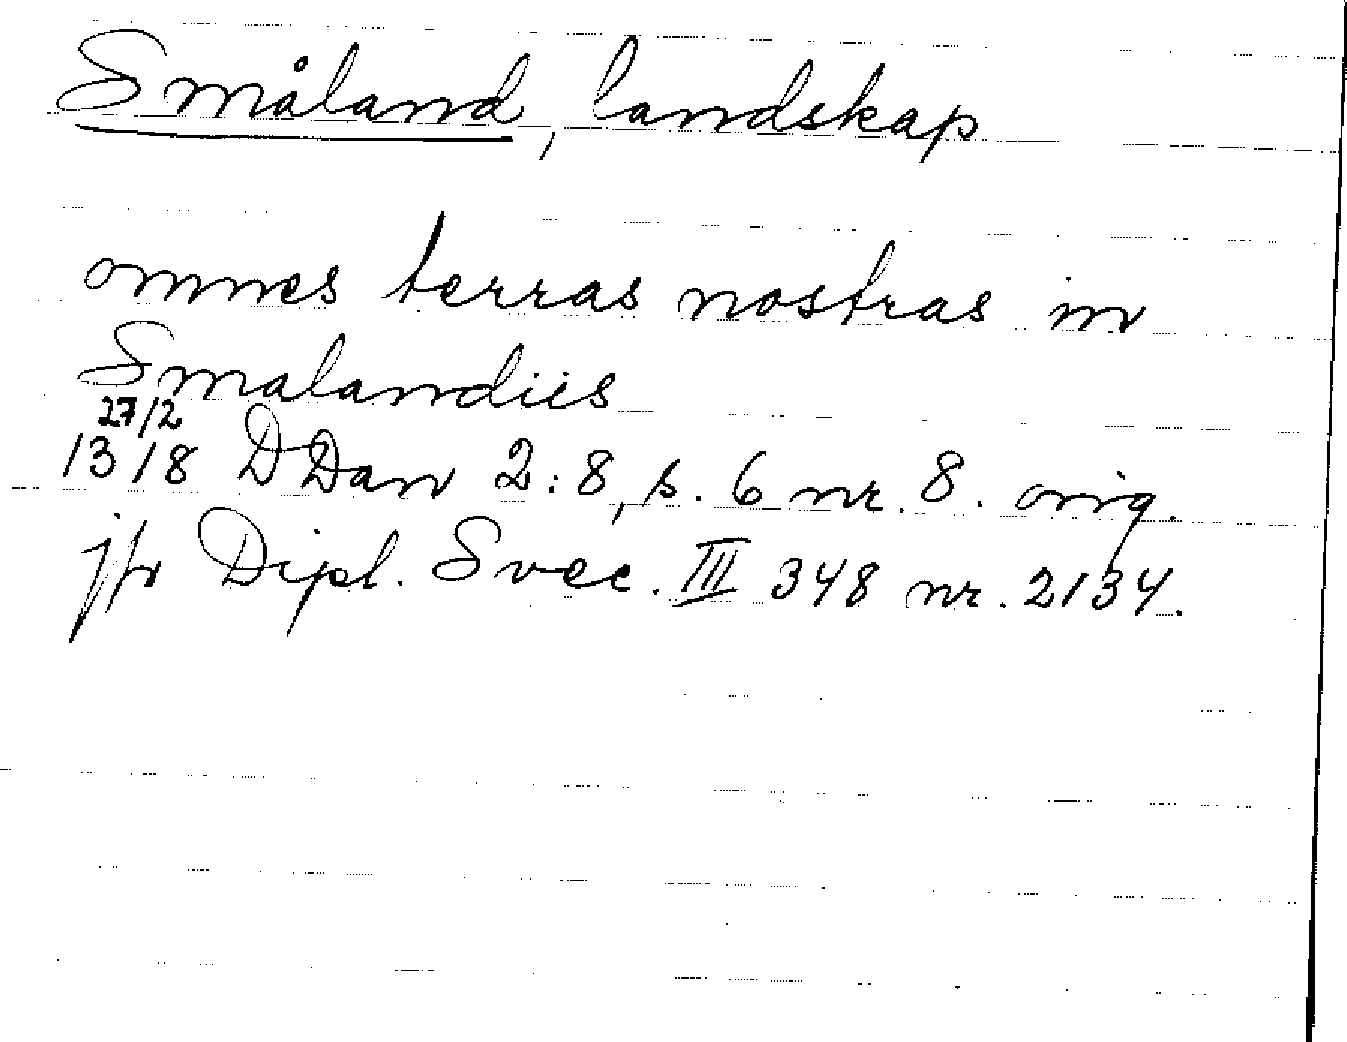 Småland, landskap
omnes terras nostras in
Smalandiis
27/2
1318 DDan 2:8, s. 6 nr. 8. orig.
jfr Dipl. Svec. III 348 nr. 2134.